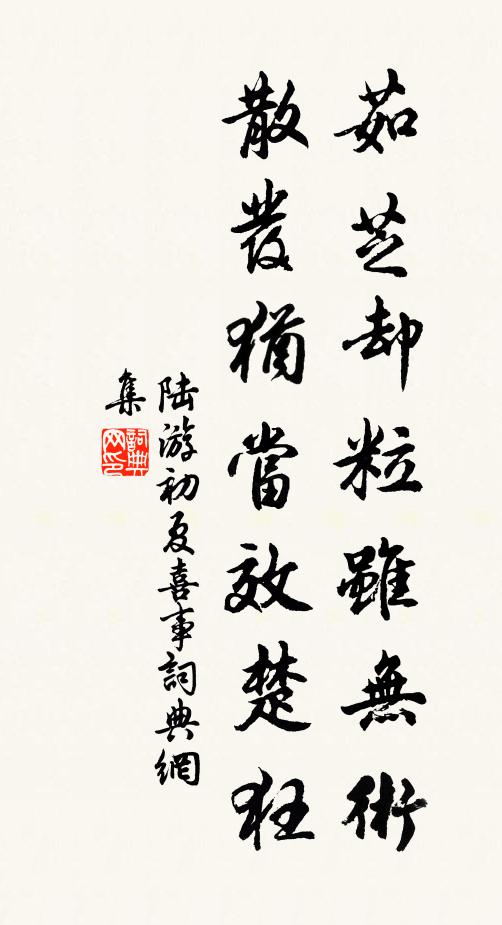 茹芝却粒雖無術
散發猶當效楚狂
陸游初夏喜事詞典網
集
詞典
网印